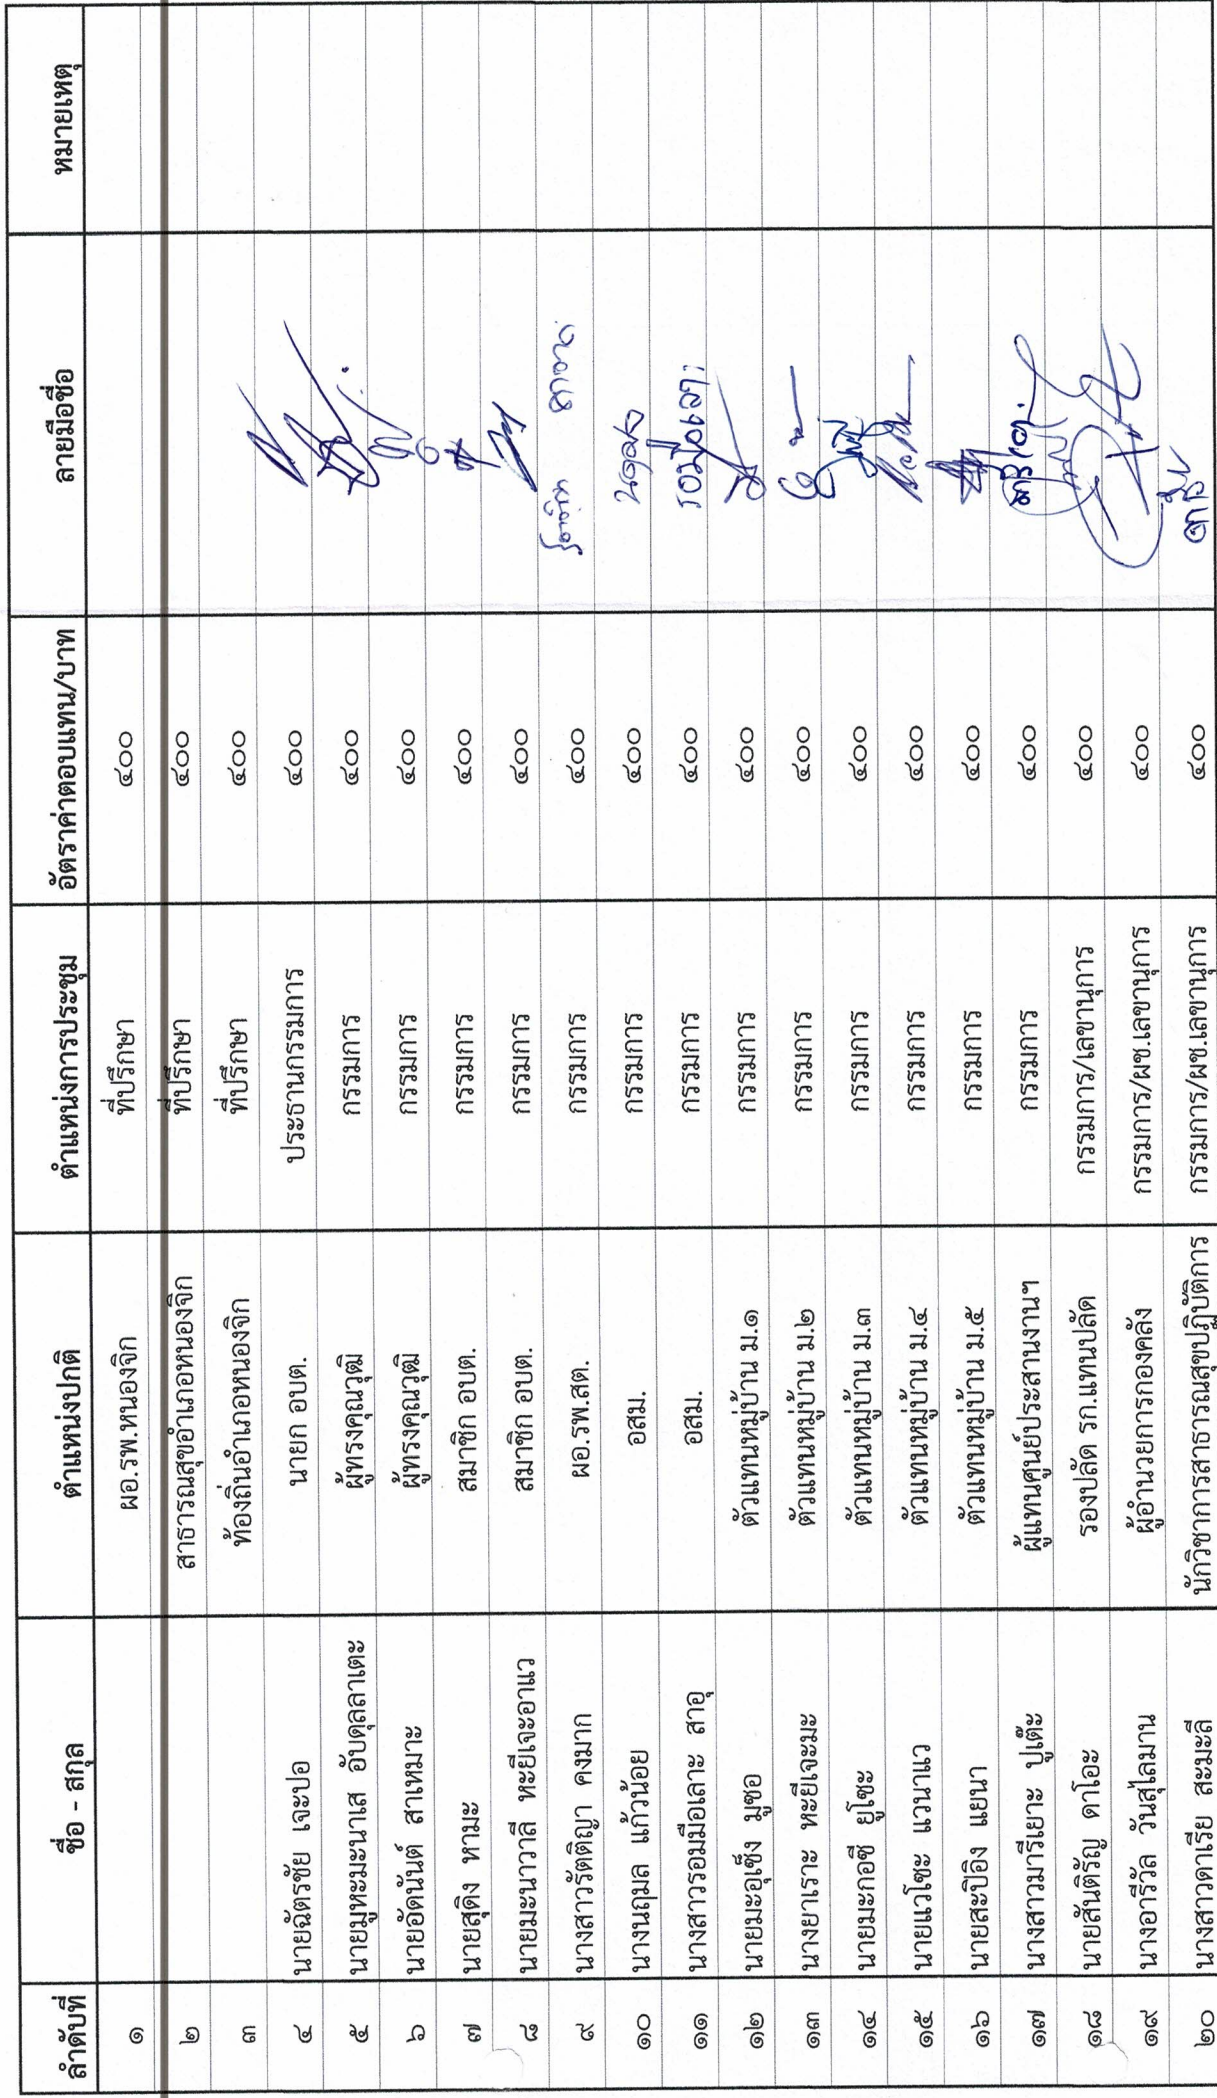 ลำดับที่ ชื่อ - สกุล ตำแหน่งปกติ ตำแหน่งการประชุม อัตราค่าตอบแทน/บาท ลายมือชื่อ หมายเหตุ
๑ ผอ.รพ.หนองจิก ที่ปรึกษา ๔๐๐
๒ สาธารณสุขอำเภอหนองจิก ที่ปรึกษา ๔๐๐
๓ ท้องถิ่นอำเภอหนองจิก ที่ปรึกษา ๔๐๐
๔ นายฉัตรชัย เจะปอ นายก อบต. ประธานกรรมการ ๔๐๐
๕ นายมูหะมะนาเส อับดุลลาเตะ ผู้ทรงคุณวุฒิ กรรมการ ๔๐๐
๖ นายอัดนันต์ สาเหมาะ ผู้ทรงคุณวุฒิ กรรมการ ๔๐๐
๗ นายสุดิง หามะ สมาชิก อบต. กรรมการ ๔๐๐
๘ นายมะนาวาลี หะยีเจะอาแว สมาชิก อบต. กรรมการ ๔๐๐
๙ นางสาวรัตติญา คงมาก ผอ.รพ.สต. กรรมการ ๔๐๐
๑๐ นางนฤมล แก้วน้อย อสม. กรรมการ ๔๐๐
๑๑ นางสาวรอมมือเลาะ สาอุ อสม. กรรมการ ๔๐๐
๑๒ นายมะอุเซ็ง มูซอ ตัวแทนหมู่บ้าน ม.๑ กรรมการ ๔๐๐
๑๓ นางยาเราะ หะยีเจะมะ ตัวแทนหมู่บ้าน ม.๒ กรรมการ ๔๐๐
๑๔ นายมะกอซี ยูโซะ ตัวแทนหมู่บ้าน ม.๓ กรรมการ ๔๐๐
๑๕ นายแวโซะ แวนาแว ตัวแทนหมู่บ้าน ม.๔ กรรมการ ๔๐๐
๑๖ นายสะปิอิง แยนา ตัวแทนหมู่บ้าน ม.๕ กรรมการ ๔๐๐
๑๗ นางสาวมารีเยาะ ปูเต๊ะ ผู้แทนศูนย์ประสานงานฯ กรรมการ ๔๐๐
๑๘ นายสันติรัญ ดาโอะ รองปลัด รก.แทนปลัด กรรมการ/เลขานุการ ๔๐๐
๑๙ นางอารีวัล วันสุไลมาน ผู้อำนวยการกองคลัง กรรมการ/ผช.เลขานุการ ๔๐๐
๒๐ นางสาวดาเรีย สะมะลี นักวิชาการสาธารณสุขปฏิบัติการ กรรมการ/ผช.เลขานุการ ๔๐๐